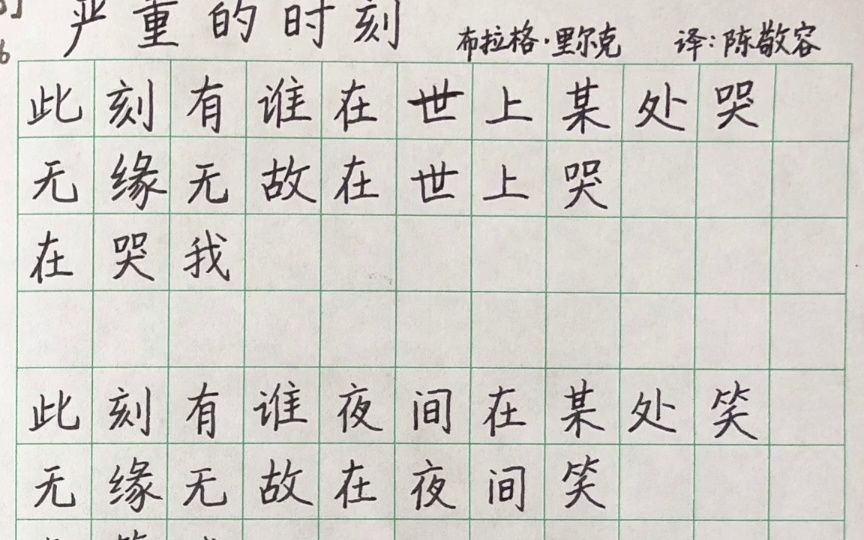 严重的时刻
布拉格·里尔克 译:陈敬容
此刻有谁在世上某处哭
无缘无故在世上哭
在哭我
此刻有谁夜间在某处笑
无缘无故在夜间笑